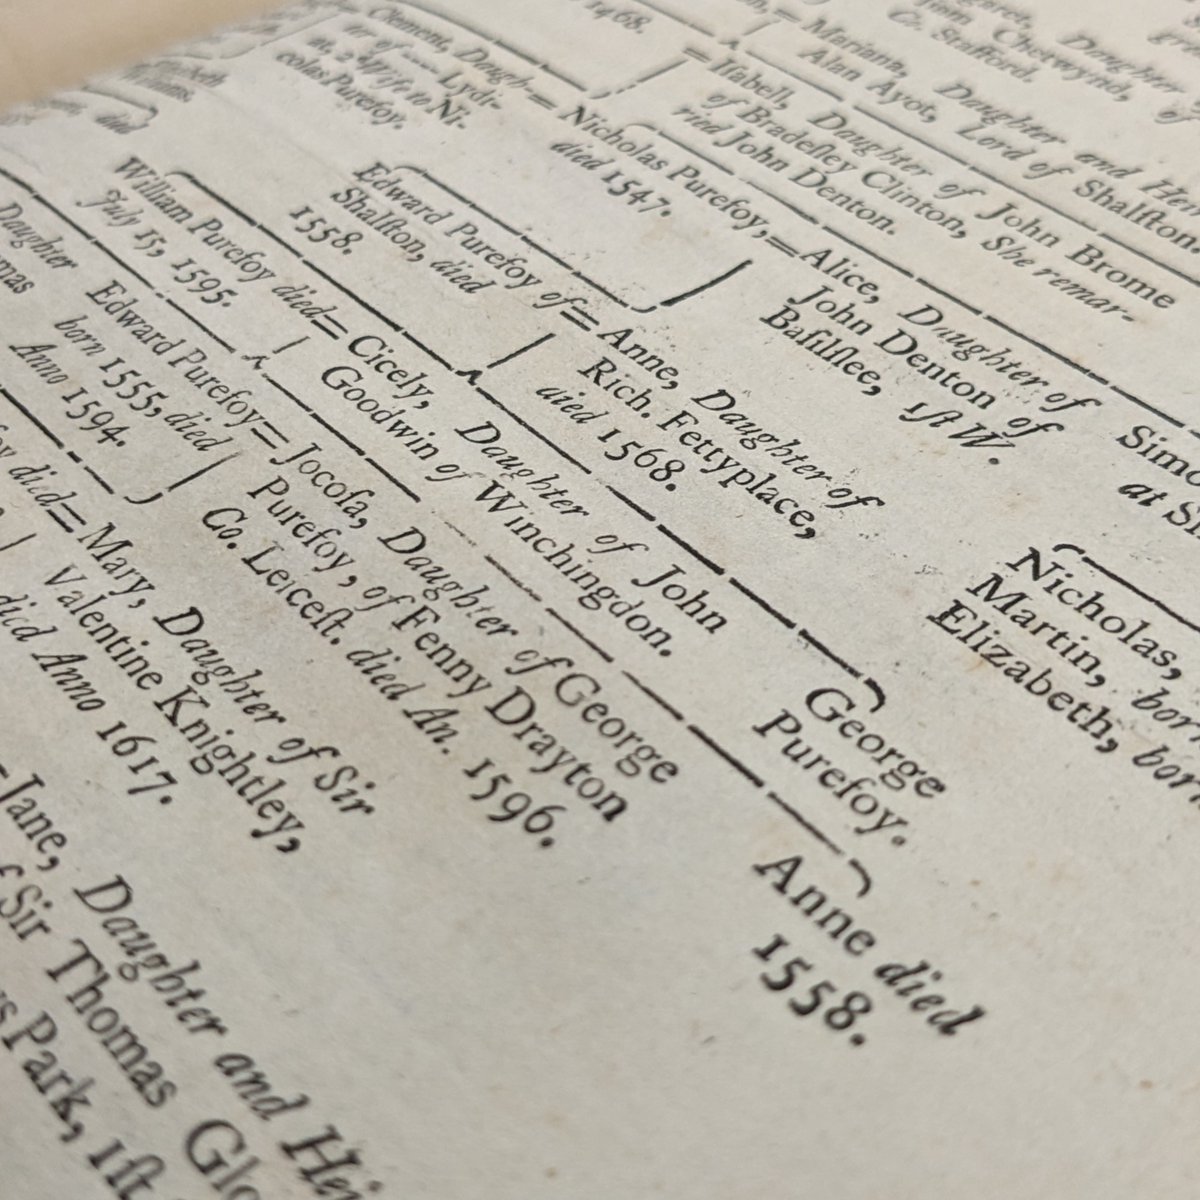 1468.
Mariann, Daughter and Heir
Alan Ayot, Lord of Shalſton.
Co. Stafford.
Clement, Daugh-
ter of ---- Lydi-
at, 2 Wife to Ni-
colas Purefoy.
Iſabell, Daughter of John Brome
of Bradeſley Clinton, She remar-
ried John Denton.
Nicholas Purefoy,
died 1547.
Alice, Daughter of
John Denton of
Baſiſſlee, 1ſt W.
William Purefoy died
July 15, 1595.
Edward Purefoy of
Shalſton, died
1558.
Anne, Daughter of
Rich. Fettyplace,
died 1568.
Nicholas,
Martin, born
Elizabeth, born
Daughter
Edward Purefoy
born 1555, died
Anno 1594.
Cicely, Daughter of John
Goodwin of Winchingdon.
George
Purefoy.
died
Mary, Daughter of Sir
Valentine Knightley,
died Anno 1617.
Jocoſa, Daughter of George
Purefoy, of Fenny Drayton
Co. Leiceſt. died An. 1596.
Anne died
1558.
Jane, Daughter and Hei
Sir Thomas Glo
Park, 1ſt